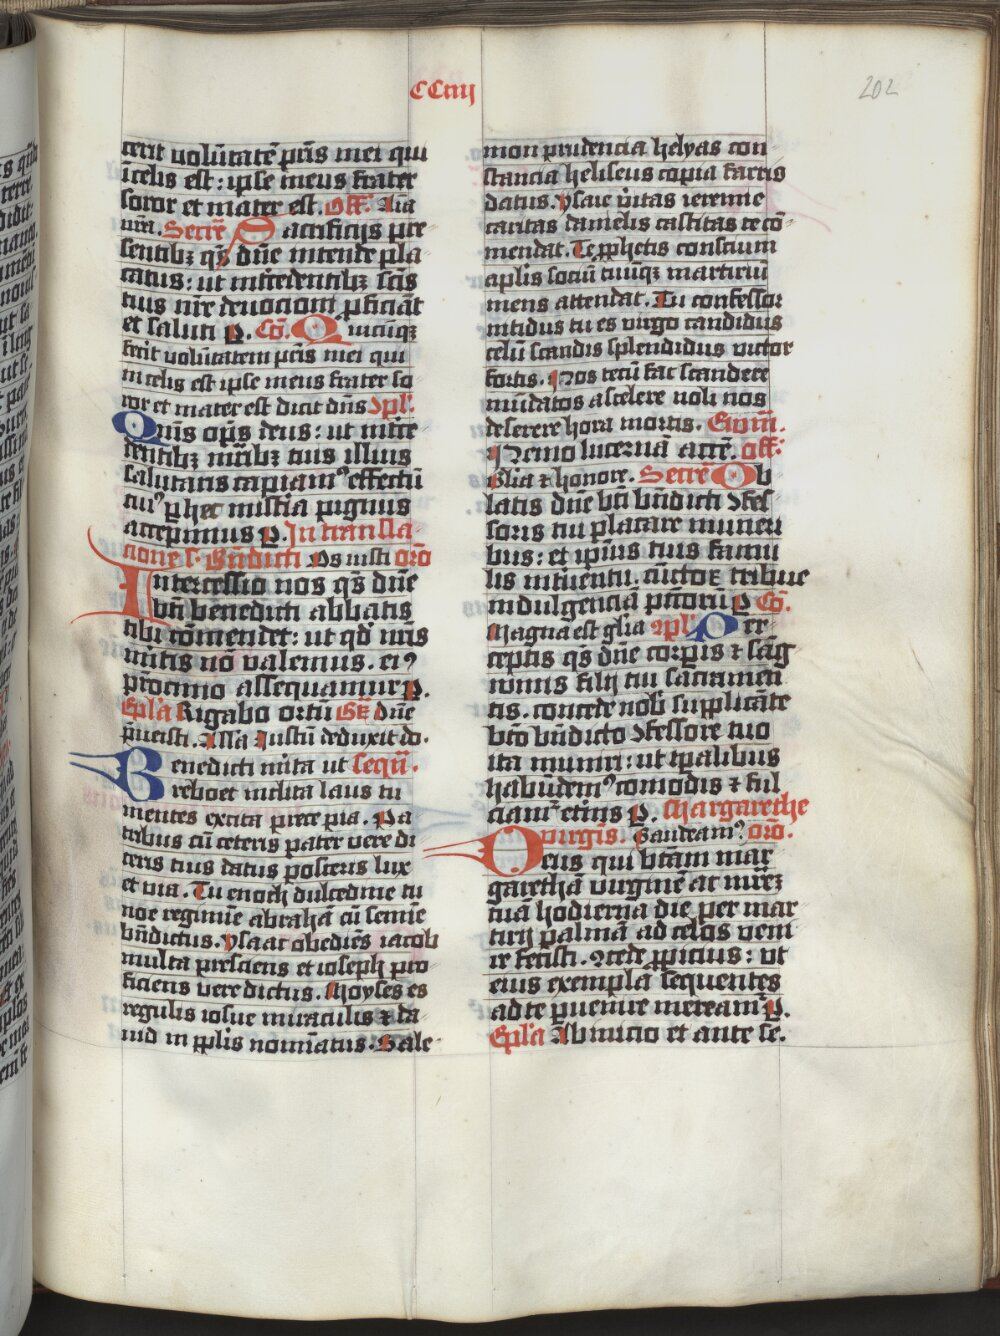 CCiiij
202
cerit volūtatē pr̄is mei qui
ī celis est : ipse meus frater
soror et mater est. Off. Filia
vrā. Secrē Sacrificijs pre
sentibꝫ qs̄ dn̄e intende pla
catus : ut intercedentibꝫ sc̄is
tuis nr̄e deuocioni ꝓficiāt
et saluti P. Cō. Quicūqꝫ
fecit volūtatem pr̄is mei qui
in celis est ipse meus frater so
ror et mater est dicit dn̄s Ꝯpl̄.
Quis op̄s deus : ut interce
dentibꝫ mr̄ibꝫ tuis illius
salutaris capiamꝰ effectū
cuiꝰ ꝑ hec mistia pignus
accepimus P. In transla
cione s. Bn̄dicti Os iusti oro
Intercessio nos qs̄ dn̄e
bt̄i benedicti abbatis
tibi cōmendet : ut qd̄ nr̄is
mitis nō valemus. eiꝰ
pr̄ocinio assequamur P.
Epl̄a Rigabo ortū Gr̄. Dn̄e
p̄uenisti. Alla Iustū deduxit do.
Benedicti mita ut seqū.
Breboet inclita laus tu
mentes excita prece pia. Pa
tribus cū ceteris pater vere di
ceris tuis datus posteris lux
et via. Tu enoch dulcedine tu
noe regimine abrahā cū semine
bn̄dictus. Ysaac obediēs iacob
multa presciens et ioseph pro
ficiens vere dictus. Moyses es
regulis iosue miraculis ⁊ da
uid in pp̄lis nomīatus. Sale
mon prudencia helyas con
stancia heliseus copia factis
datus. Ysaie v̄itas ieremie
caritas danielis castitas te cō
mendat. Te ꝓphetis conscium
ap̄lis sociū tuūqꝫ martiriū
mens attendat. Tu confessor
nitidus tu es virgo candidus
celū scandis splendidus victor
fortis. Nos tecū fac scandere
mūdatos a scelere noli nos
deserere hora mortis. Ewm̄.
Nemo lucernā accē. off:
Glia ⁊ honore. Secrē Ob
latis dn̄e bt̄i bn̄dicti Ꝯfes
soris tui placare muneri
bus : et ipius tuis famu
lis intuentu. cūctoꝝ tribue
indulgencia pcc̄orū P Cō.
Magna est glīa ꝯpl̄. Per
ceptis qs̄ dn̄e corꝑis ⁊ sāg
winis filij tui sacramen
tis. concede nob̄ supplicāte
bt̄o bn̄dicto Ꝯfessore tuo
ita muniri : ut tp̄alibus
habūdemꝰ comodis ⁊ ful
ciamꝰ et̄nis P. Margarethe
virgis. Gaudeamꝰ oro.
Deus qui bt̄am mar
garethā virginē ac mr̄eꝫ
tuā hodierna die per mar
tirij palmā ad celos veni
re fecisti. Ꝯcede ꝓpicius : vt
eius exempla sequentes
ad te ꝑuenire mereamꝰ P.
Epl̄a Ab inicio et ante se.